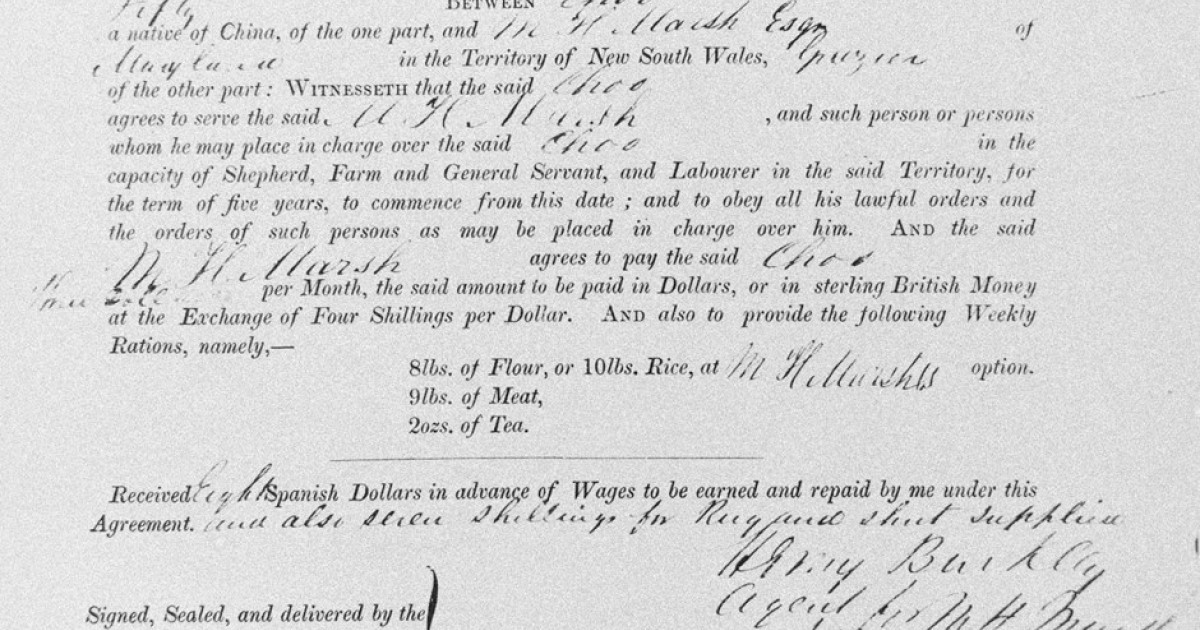 Fifty BETWEEN Choo
a native of China, of the one part, and M H Marsh Esqr of
Maryland in the Territory of New South Wales, Grazier
of the other part: WITNESSETH that the said Choo
agrees to serve the said M H Marsh, and such person or persons
whom he may place in charge over the said Choo in the
capacity of Shepherd, Farm and General Servant, and Labourer in the said Territory, for
the term of five years, to commence from this date; and to obey all his lawful orders and
the orders of such persons as may be placed in charge over him. AND the said
M H Marsh agrees to pay the said Choo
per Month, the said amount to be paid in Dollars, or in sterling British Money
at the Exchange of Four Shillings per Dollar. AND also to provide the following Weekly
Rations, namely,—
8lbs. of Flour, or 10lbs. Rice, at M H Marsh's option.
9lbs. of Meat,
2ozs. of Tea.
Received Eight Spanish Dollars in advance of Wages to be earned and repaid by me under this
Agreement. and also seven shillings for Rug and shirt supplied
Henry
Agent for M H Marsh
Signed, Sealed, and delivered by the